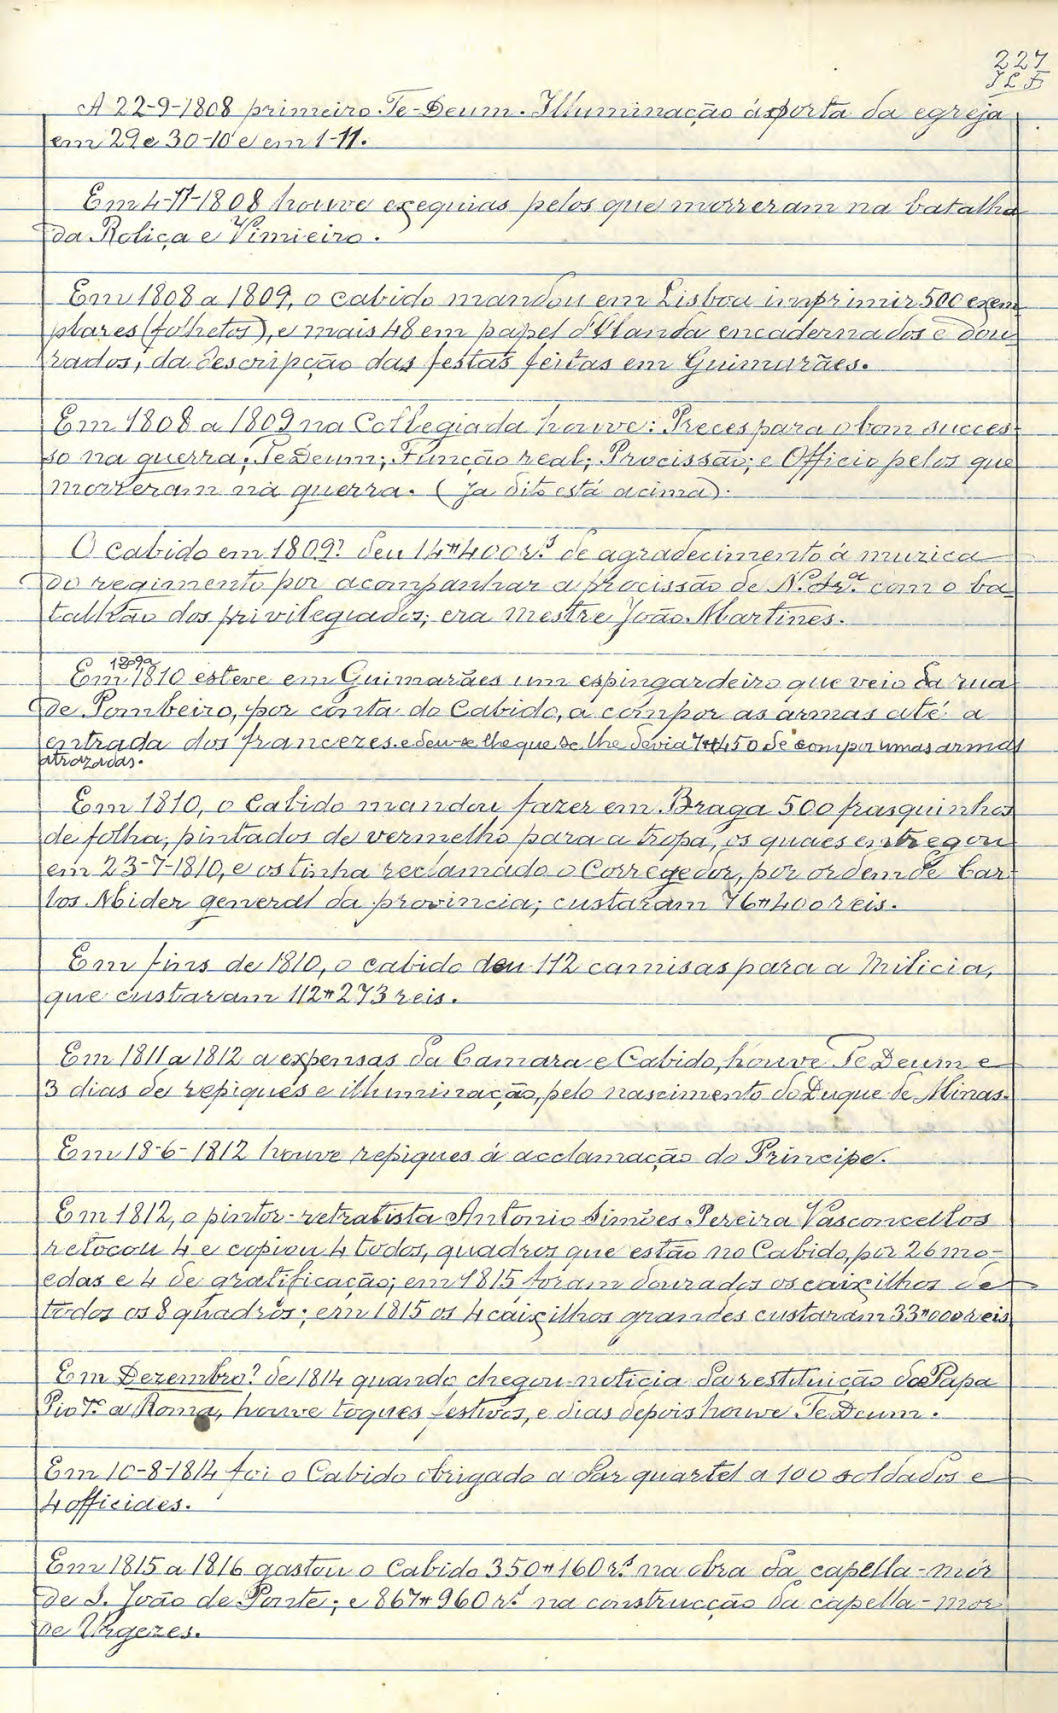 227
JLF
A 22-9-1808 primeiro Te-Deum. Illuminação á porta da egreja
em 29 e 30-10 e em 1-11.
Em 4-11-1808 houve exequias pelos que morreram na batalha
da Roliça e Vimieiro.
Em 1808 a 1809, o cabido mandou em Lisboa imprimir 500 exem
plares (folhetos), e mais 48 em papel d'Olanda encadernados e dou
rados, da descripção das festas feitas em Guimarães.
Em 1808 a 1809 na Collegiada houve: Preces para o bom succes-
so na guerra; TeDeum; Funcção real; Procissão; e Officio pelos que
morreram na guerra. (Ja dito está acima).
O cabido em 1809? deu 14#400 r.s de agradecimento á muzica
do regimento por acompanhar a procissão de N.ª Sr.ª com o ba-
talhão dos privilegiados; era mestre João Martines.
1809 a
Em 1810 esteve em Guimarães um espingardeiro que veio da rua
de Pombeiro, por conta do Cabido, a compor as armas até a
entrada dos francezes. e deu-se lhe que se lhe devia 7#450 de compor umas armas
atrazadas.
Em 1810, o Cabido mandou fazer em Braga 500 frasquinhos
de folha, pintados de vermelho para a tropa, os quaes entregou
em 23-7-1810, e os tinha reclamado o Corregedor, por ordem de Car-
los Mider general da provincia; custaram 76#400 reis.
Em fins de 1810, o cabido deu 112 camisas para a Milicia,
que custaram 112#273 reis.
Em 1811 a 1812 a expensas da Camara e Cabido, houve TeDeum e
3 dias de repiques e illuminação, pelo nascimento do Duque de Minas.
Em 18-6-1812 houve repiques á acclamação do Principe.
Em 1812, o pintor-retratista Antonio Simões Pereira Vasconcellos
retocou 4 e copiou 4 todos, quadros que estão no Cabido, por 26 mo-
edas e 4 de gratificação; em 1815 foram dourados os caixilhos de
todos os 8 quadros; em 1815 os 4 caixilhos grandes custaram 33#000 reis
Em Dezembro? de 1814 quando chegou noticia da restituição do Papa
Pio 7.º a Roma, houve toques festivos, e dias depois houve TeDeum.
Em 10-8-1814 foi o Cabido obrigado a dar quartel a 100 soldados e
4 officiaes.
Em 1815 a 1816 gastou o Cabido 350#160 r.s na obra da capella-mór
de S. João de Ponte; e 867#960 r.s na construcção da capella-mor
de Urgezes.